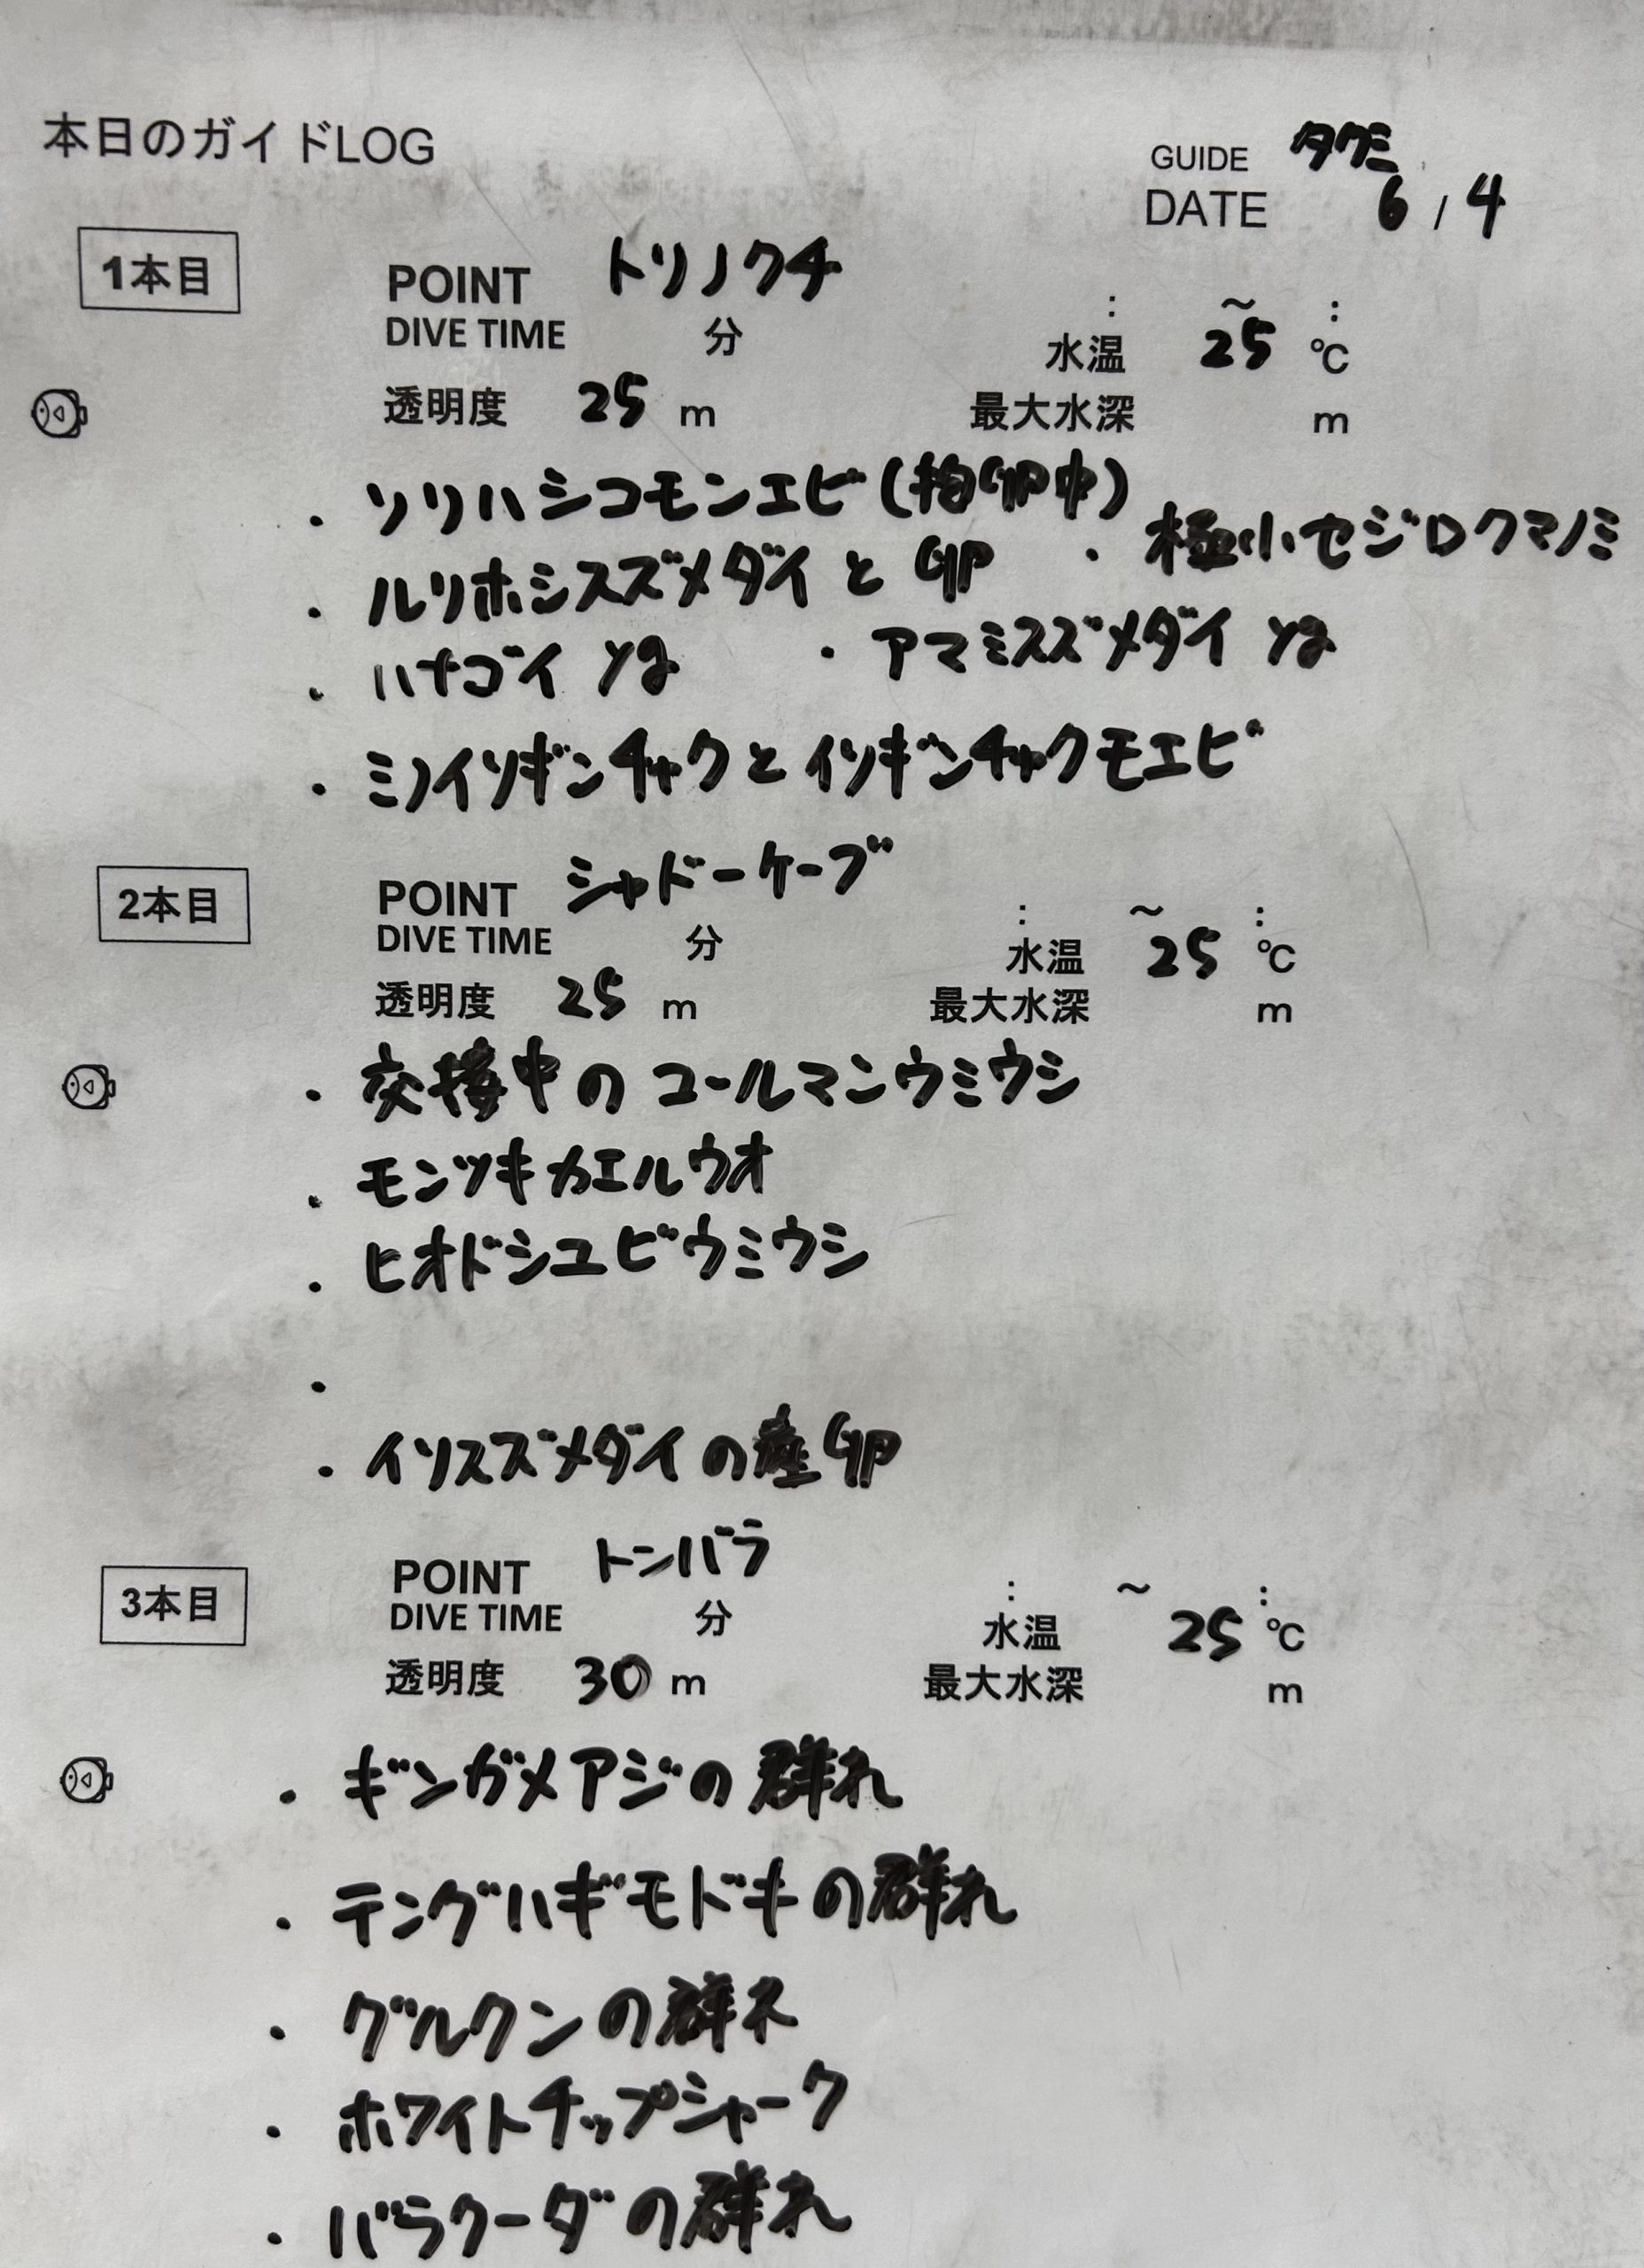 本日のガイドLOG
GUIDE タクミ
DATE 6 / 4
1本目
POINT トリノクチ
: ～ :
DIVE TIME 分 水温 25 ℃
透明度 25 m 最大水深 m
・ソリハシコモンエビ(抱卵中)
・極小セジロクマノミ
・ルリホシスズメダイと卵
・ハナゴイ yg ・アマミスズメダイ yg
・ミノイソギンチャクとイソギンチャクモエビ
2本目
POINT シャドーケーブ
: ～ :
DIVE TIME 分 水温 25 ℃
透明度 25 m 最大水深 m
・交接中のコールマンウミウシ
・モンツキカエルウオ
・ヒオドシユビウミウシ
・
・イソスズメダイの産卵
3本目
POINT トンバラ
: ～ :
DIVE TIME 分 水温 25 ℃
透明度 30 m 最大水深 m
・ギンガメアジの群れ
・テングハギモドキの群れ
・グルクンの群れ
・ホワイトチップシャーク
・バラクーダの群れ